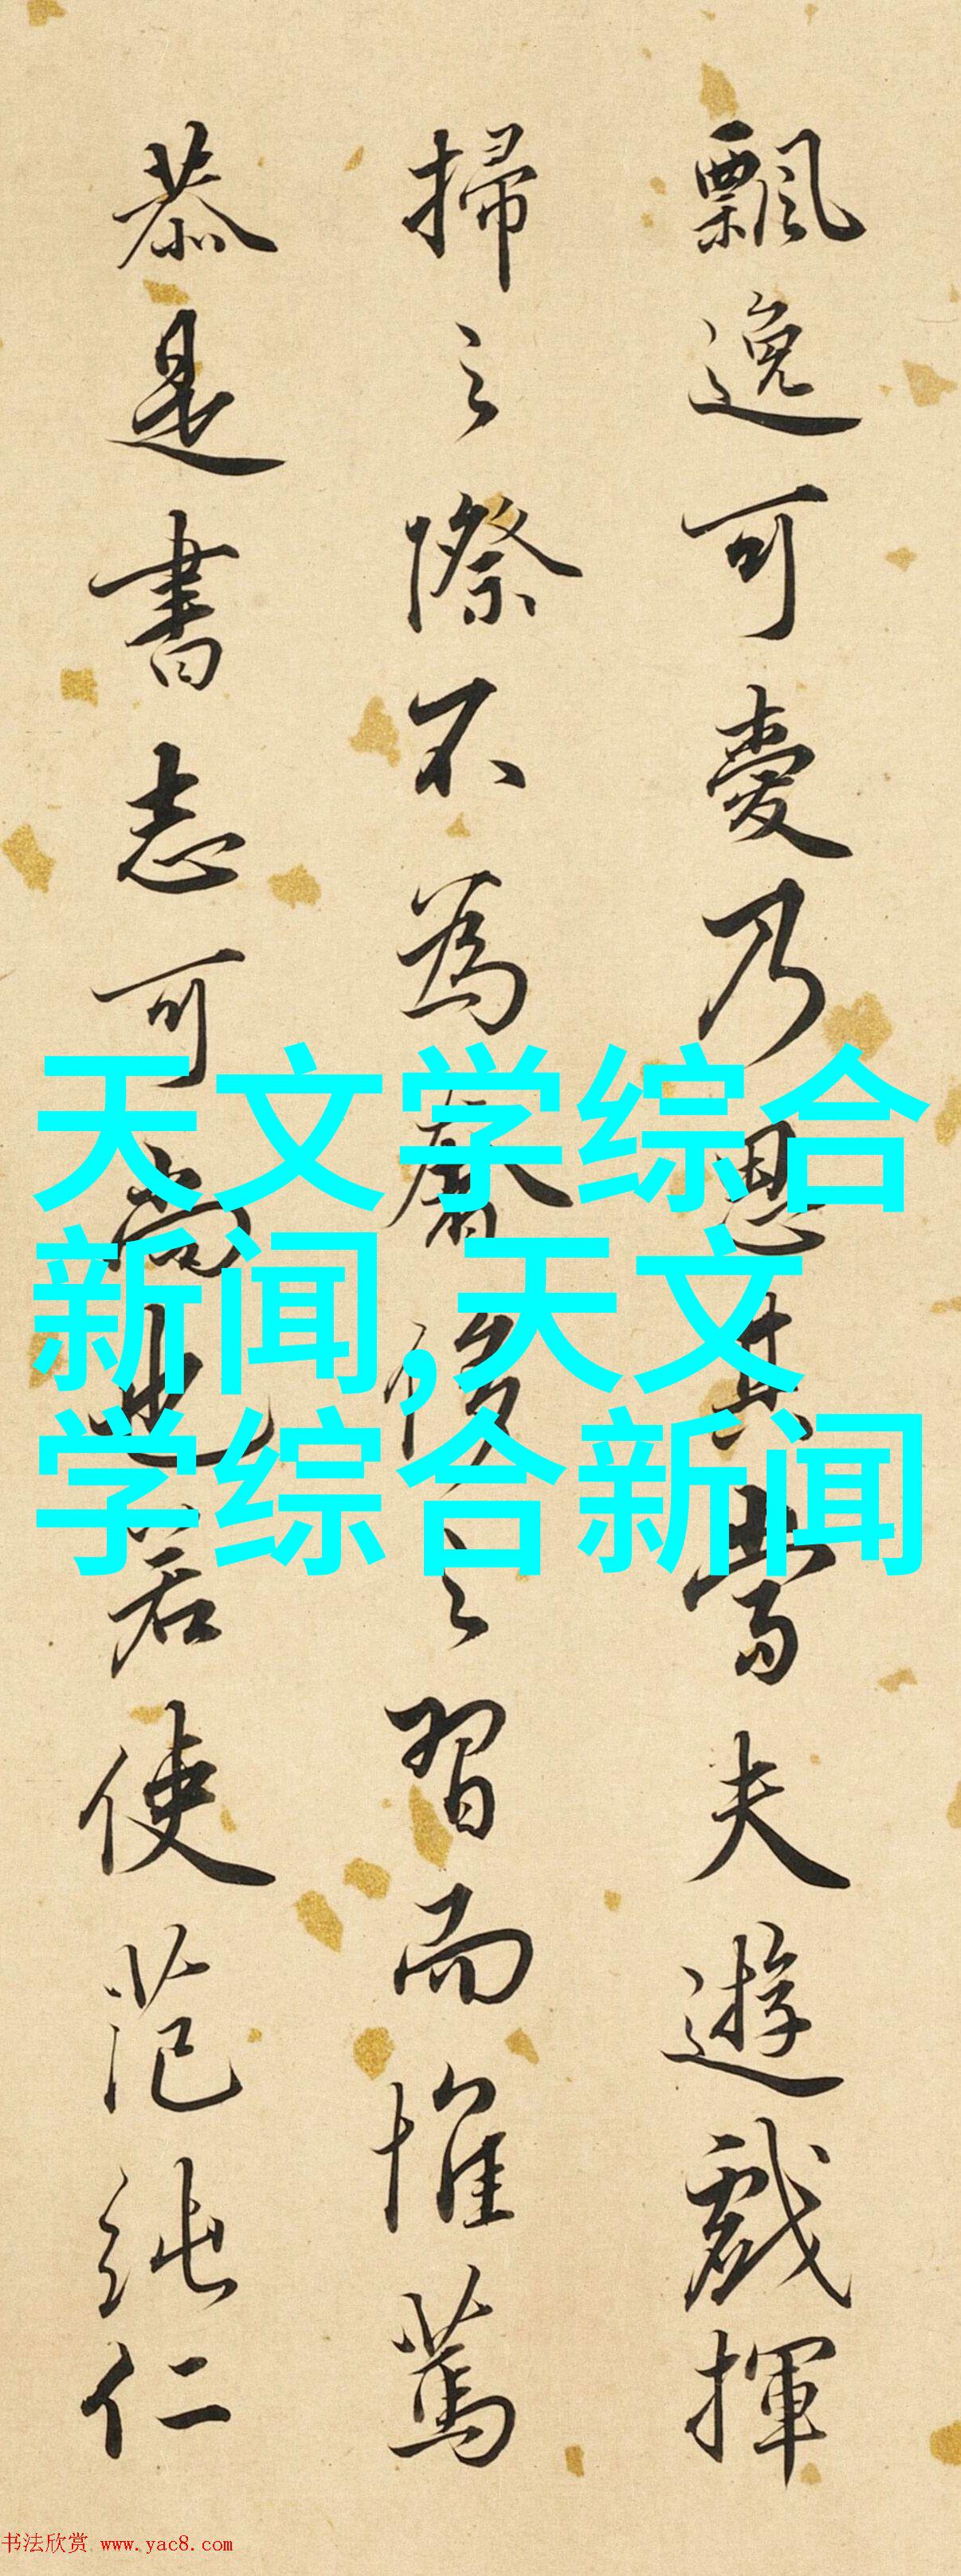 飄逸可愛乃思其當夫遊戲揮
掃之際不為廢
之習而惟篤
恭是書志可尚也若使范純仁
天文学综合
新闻,天文
学综合新闻
书法欣赏 www.yac8.com